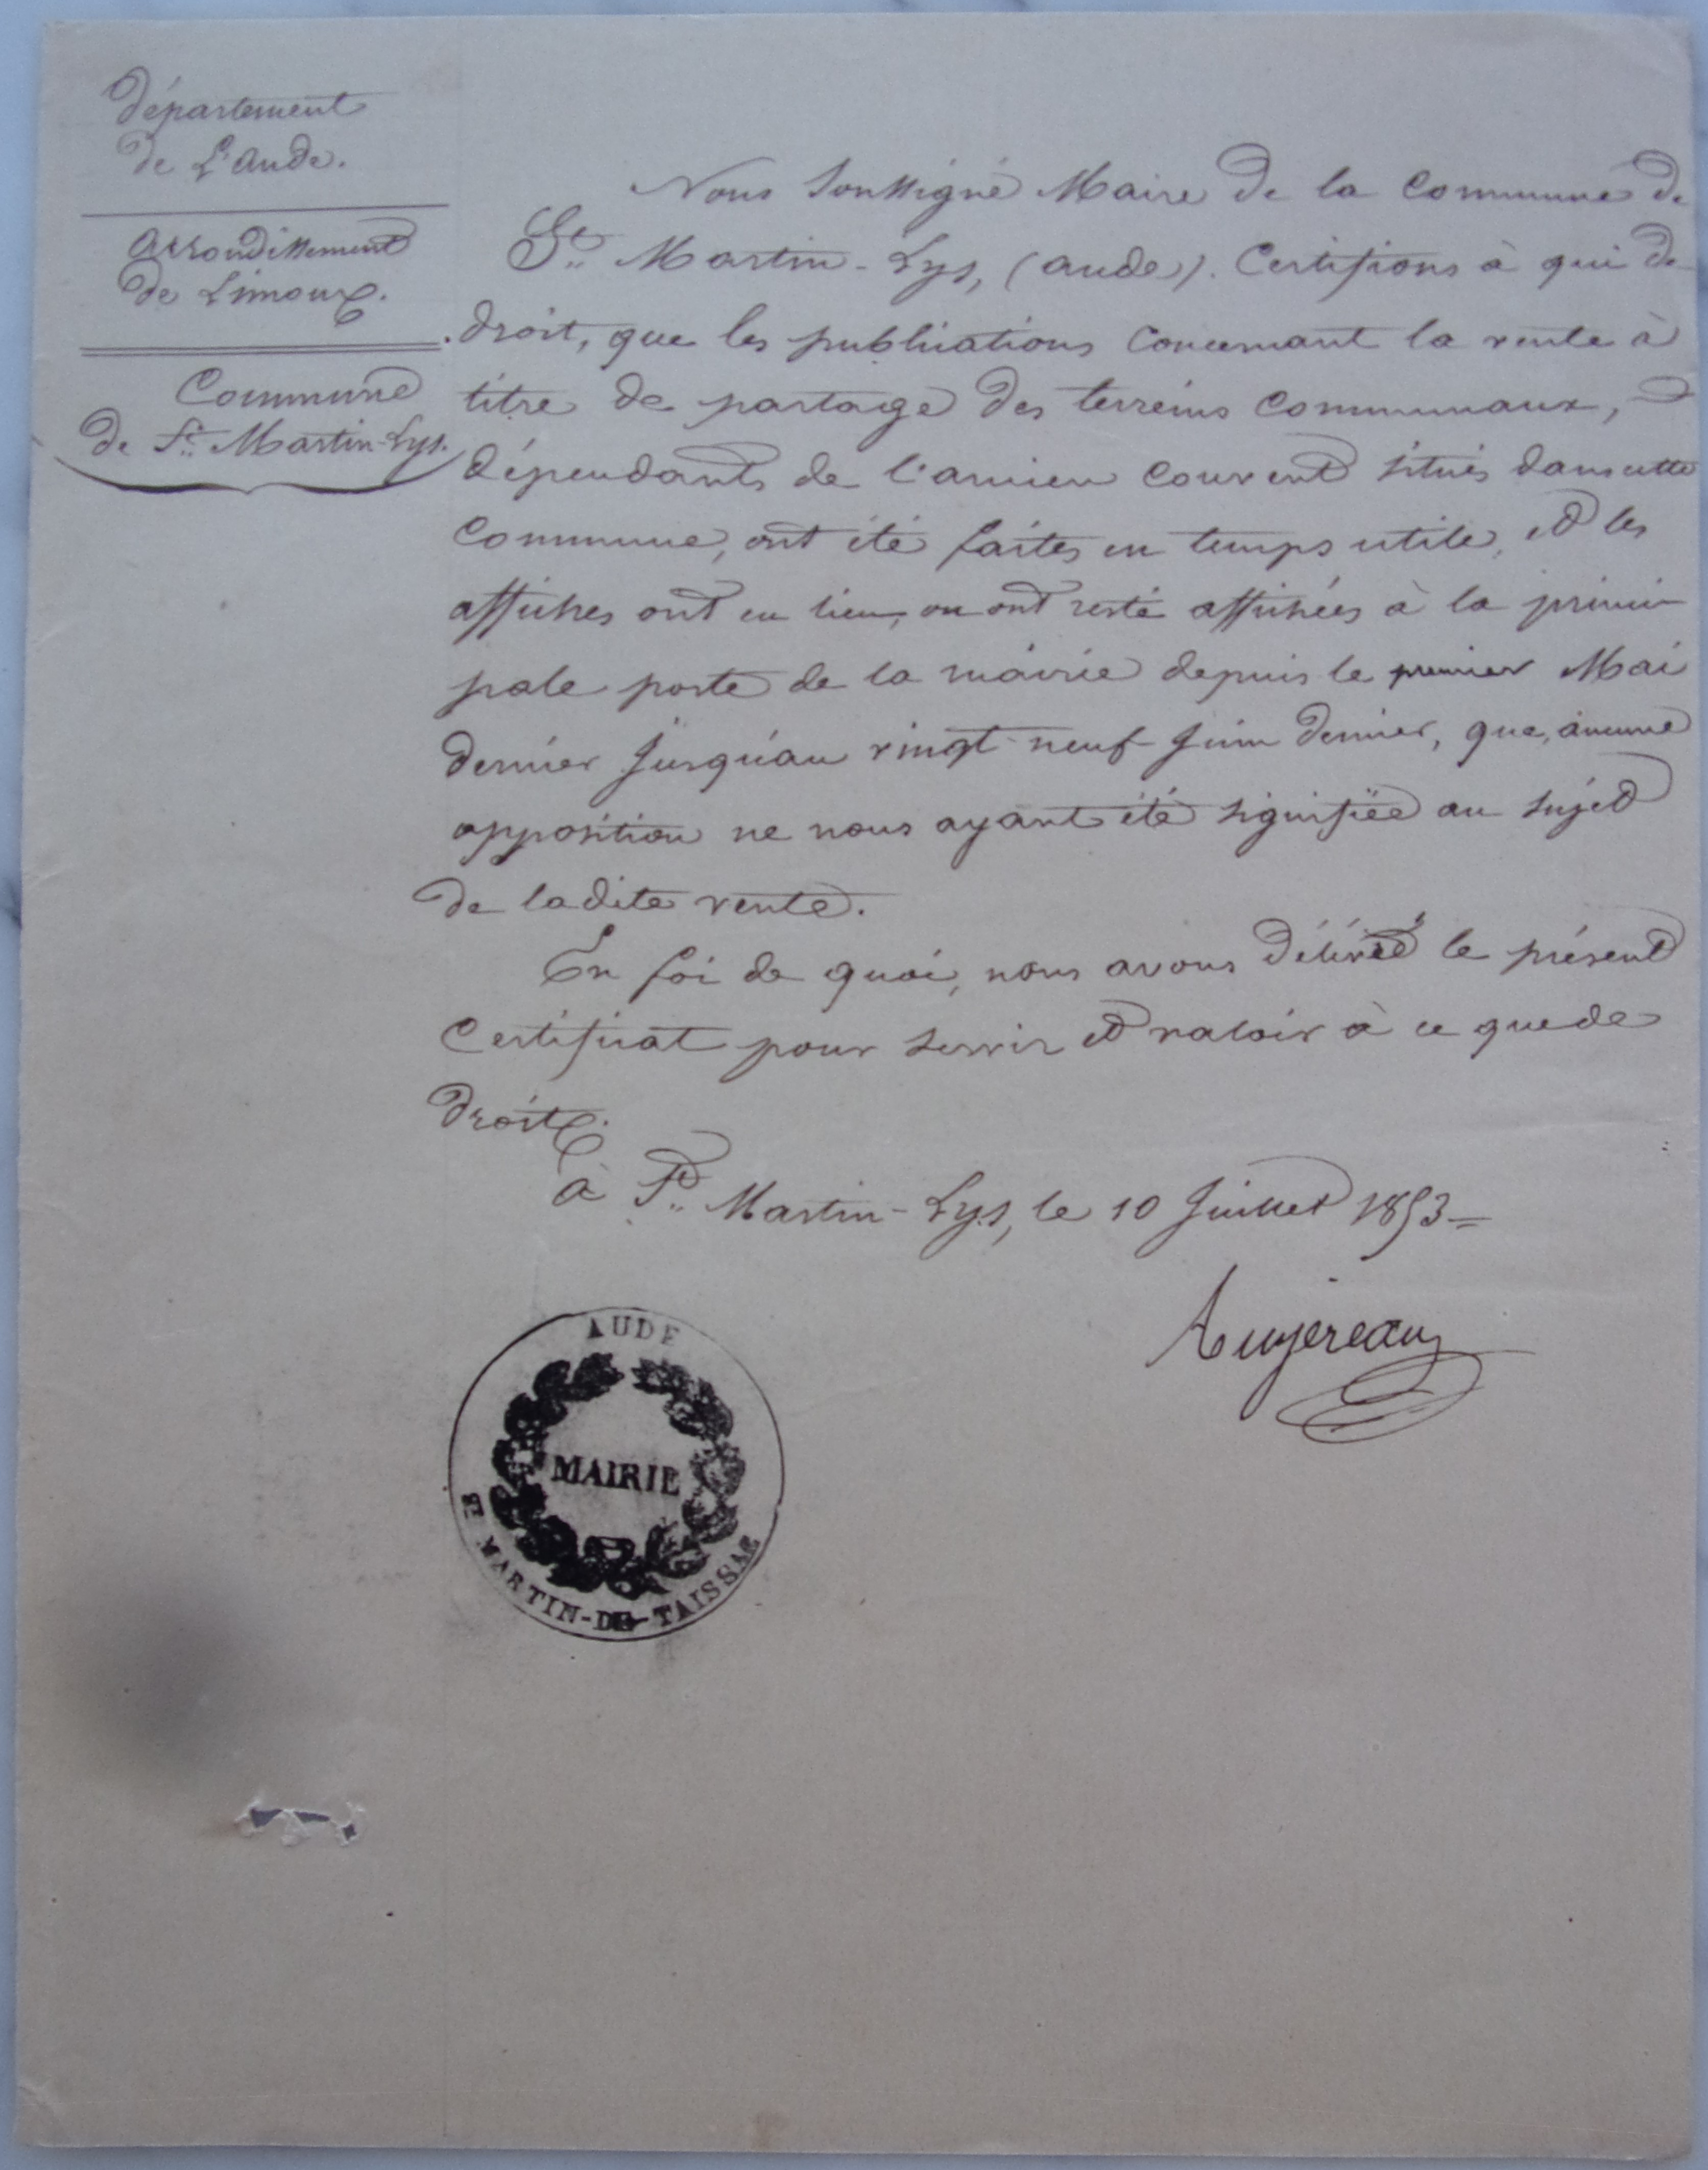 département
de L'aude.
arrondissement
de Limoux.
Commune
de St. Martin-Lys.
Nous soussigné Maire de la Commune de
St. Martin-Lys, (aude). Certifions à qui de
droit, que les publications concernant la vente à
titre de partage des terreins communaux,
dépendants de l'ancien couvent situés dans cette
Commune, ont été faites en temps utile, et les
affiches ont eu lieu, ou ont resté affichées à la princi
pale porte de la mairie depuis le premier Mai
dernier jusqu'au vingt-neuf juin dernier, que, aucune
opposition ne nous ayant été signifiée au sujet
de ladite vente.
En foi de quoi, nous avons délivré le présent
Certificat pour servir et valoir à ce que de
droit.
à St. Martin-Lys, le 10 Juillet 1853=
Aujereau
AUDE
MAIRIE
ST MARTIN-DE-TAISSAC